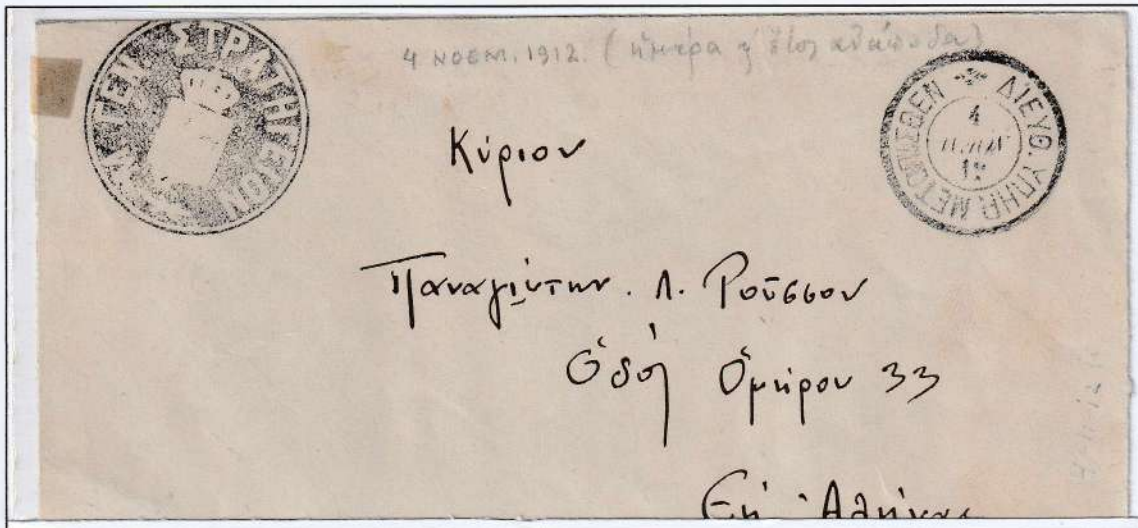 ΓΕΝ. ΣΤΡΑΤΗΓΕΙΟΝ
4 ΝΟΕΜ. 1912. (ἡμέρα ἔτος ἀνάποδα)
ΔΙΕΥΘ. ΥΠΗΡ. ΜΕΤΟΠΙΣΘΕΝ
4
12
Κύριον
Παναγιώτην. Λ. Ροῦσσον
Ὁδὸς Ὁμήρου 33
Εἰς Ἀθήνας